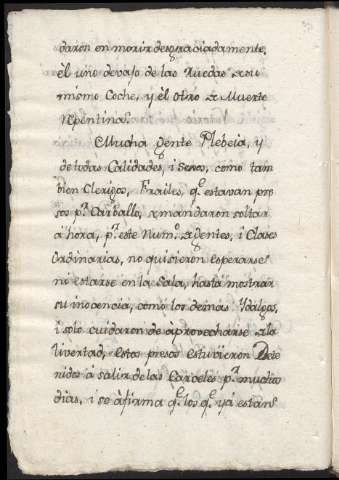 daron en morir desgraciadamente,
el uno devajo de las Ruedas de su
mismo Coche, y el otro de Muerte
Repentina.
Mucha gente Plebeia, y
de todas Calidades, i Sexos, como tam
bien Clerigos, Frailes, q.e estavan pre
sos p.r Carballo, mandaron soltar
à hora, p.r este Num.o de gentes, i Clases
Ordinarias, no quisieron esperarse
ni estarse en la Sala, hasta mostrar
su inocencia, como los demás
i solo cuidaron de aprovecharse de la
livertad, estos presos estuvieron Dete
nidos à salir de las Carceles p.r muchos
dias, i se afirma q.e los q.e yá estans